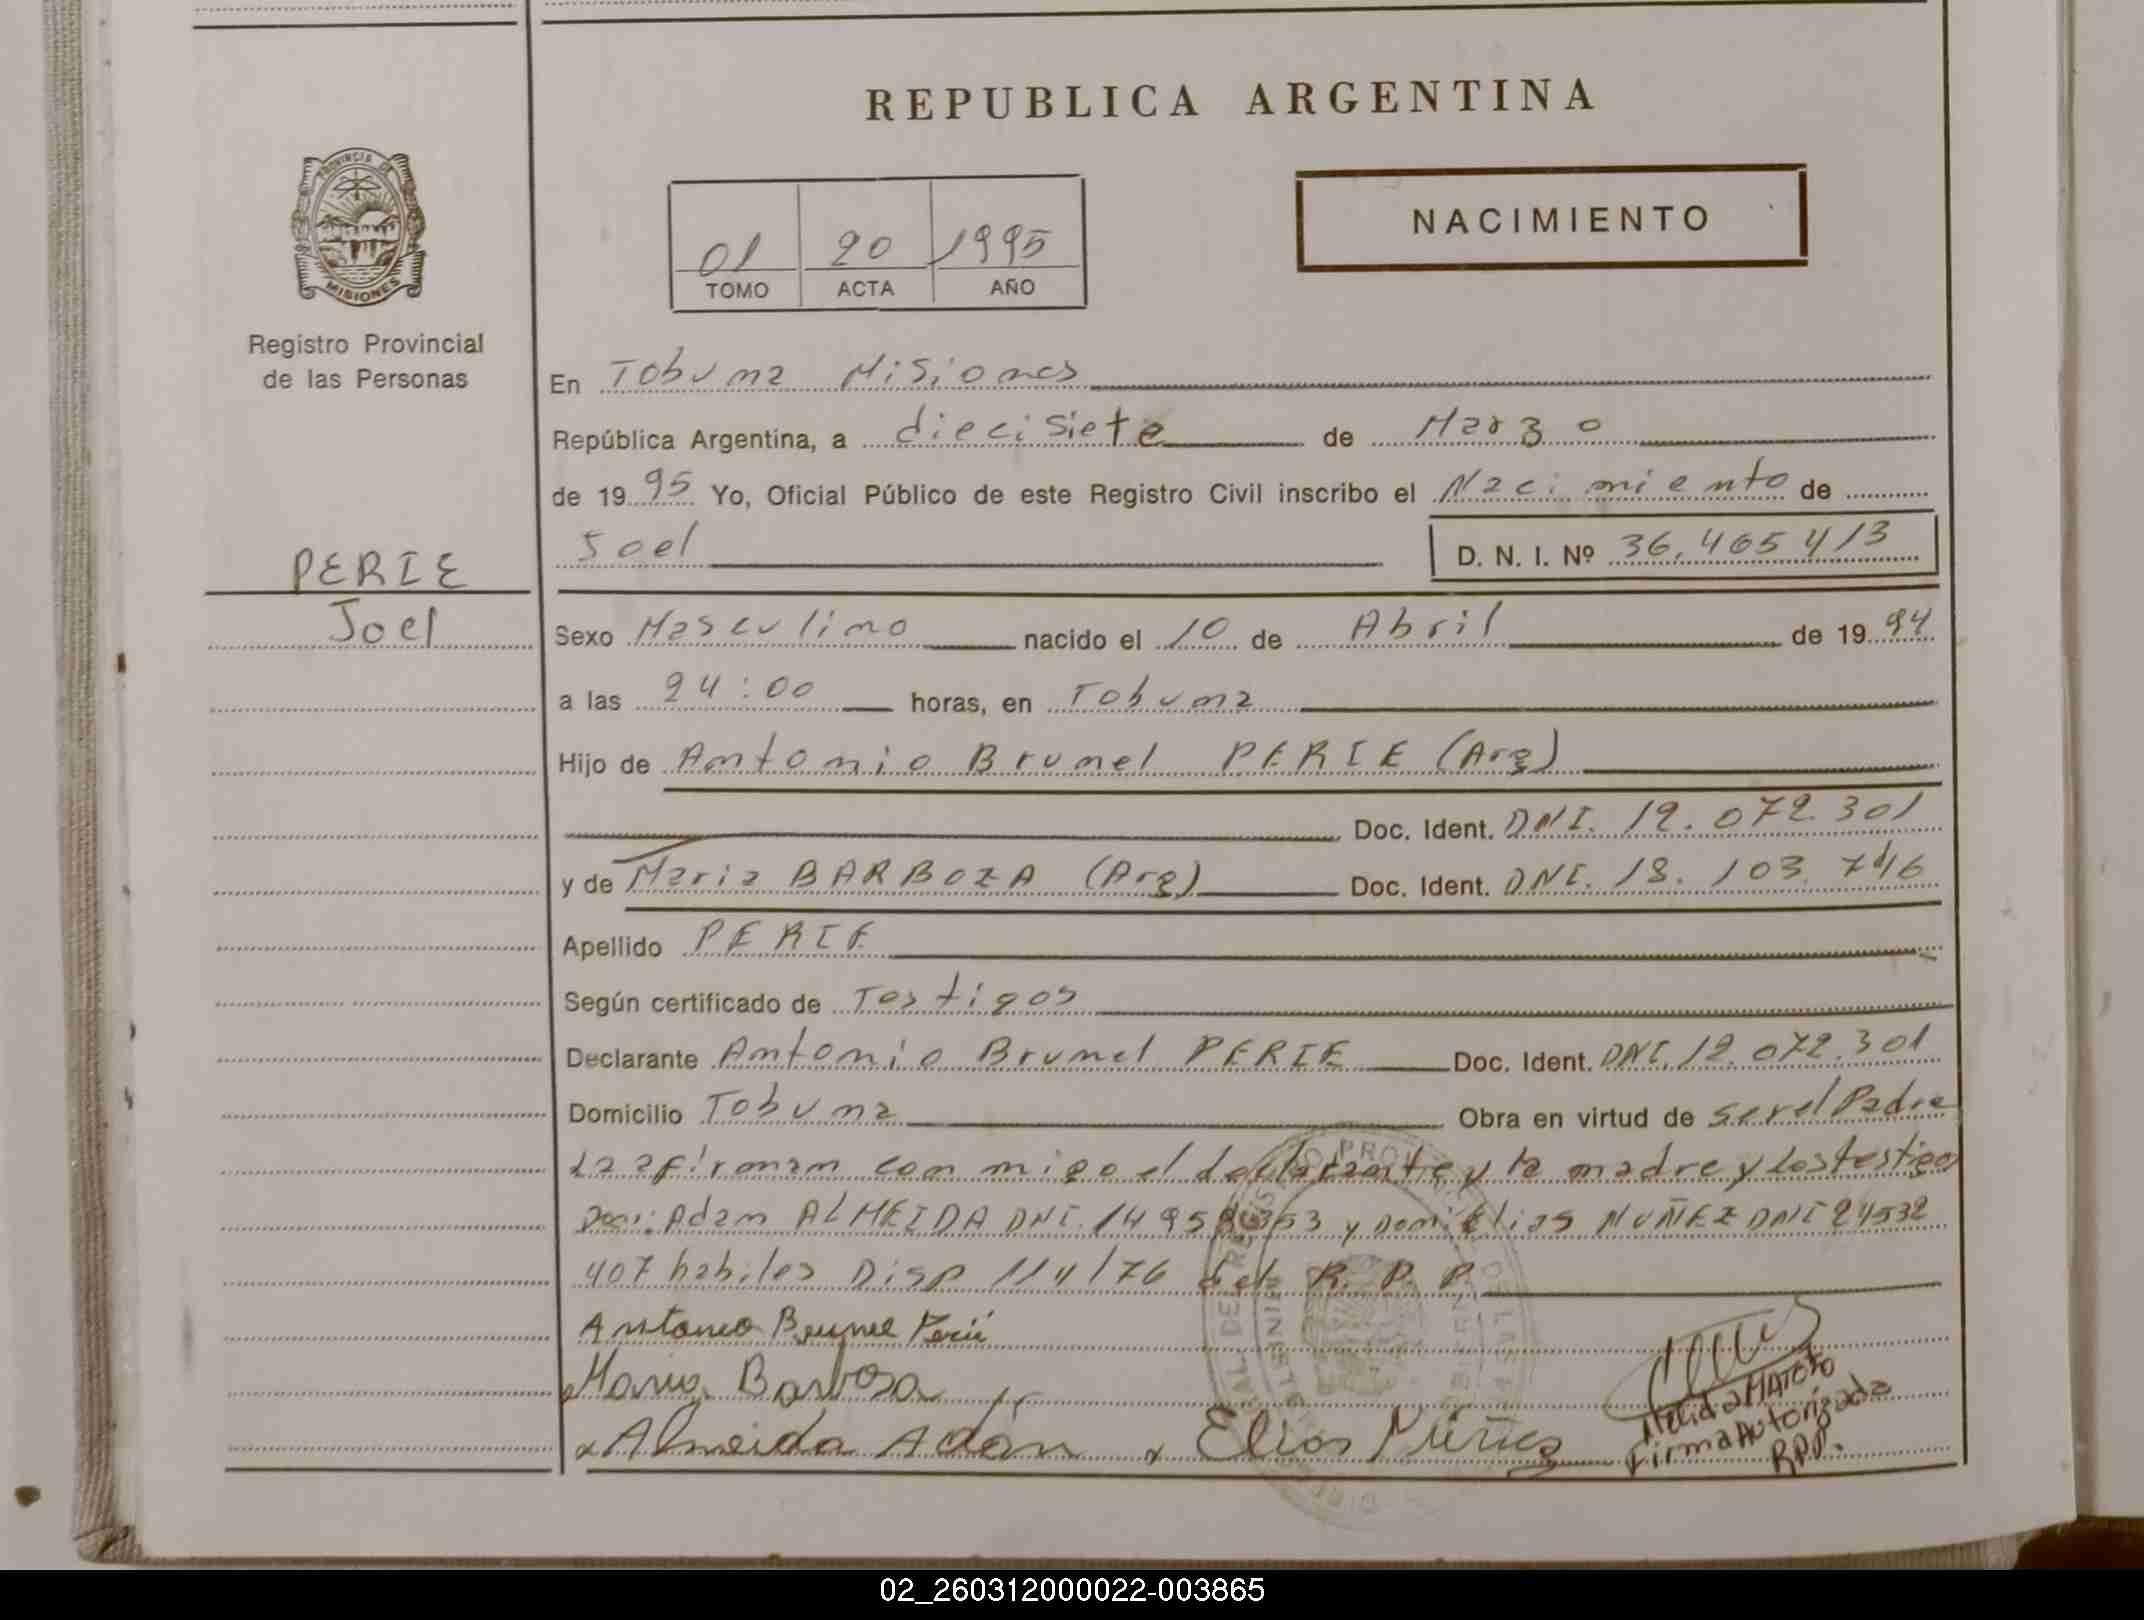 REPUBLICA ARGENTINA
PROVINCIA DE MISIONES
Registro Provincial
de las Personas
01 20 1995
TOMO ACTA AÑO
NACIMIENTO
PERIE
Joel
En Tobuna Misiones
República Argentina, a diecisiete de Marzo
de 19 95 Yo, Oficial Público de este Registro Civil inscribo el Nacimiento de
Joel D. N. I. Nº 36.465 413
Sexo Masculino nacido el 10 de Abril de 19 94
a las 24:00 horas, en Tobuna
Hijo de Antonio Brunel PERIE (Arg)
Doc. Ident. DNI. 12.072.301
y de Maria BARBOZA (Arg) Doc. Ident. DNI. 18.103.746
Apellido PERIE
Según certificado de Testigos
Declarante Antonio Brunel PERIE Doc. Ident. DNI. 12.072.301
Domicilio Tobuna Obra en virtud de ser el Padre
La afirman con migo el declarante y la madre y los testigos
Don: Adan ALMEIDA DNI. y Don: Elias NUÑEZ DNI 24532
407 habiles Disp 114/76 del R. P. P.
Antonio Brunel Perié
Maria Barbosa
x Almeida Adán x Elias Núñez
Firma Autorizada
RPP.
02_260312000022-003865